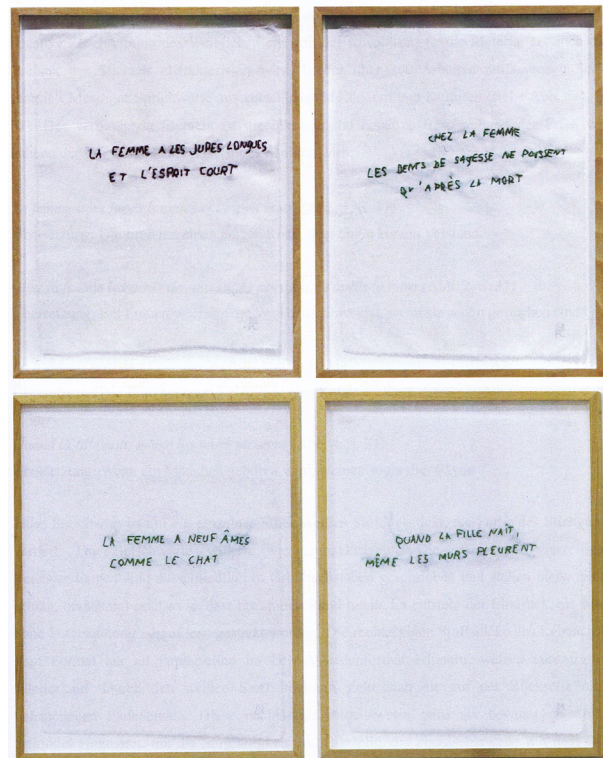 LA FEMME A LES JUPES LONGUES
ET L'ESPRIT COURT
CHEZ LA FEMME
LES DENTS DE SAGESSE NE POUSSENT
QU'APRÈS LA MORT
LA FEMME A NEUF ÂMES
COMME LE CHAT
QUAND LA FILLE NAÎT
MÊME LES MURS PLEURENT